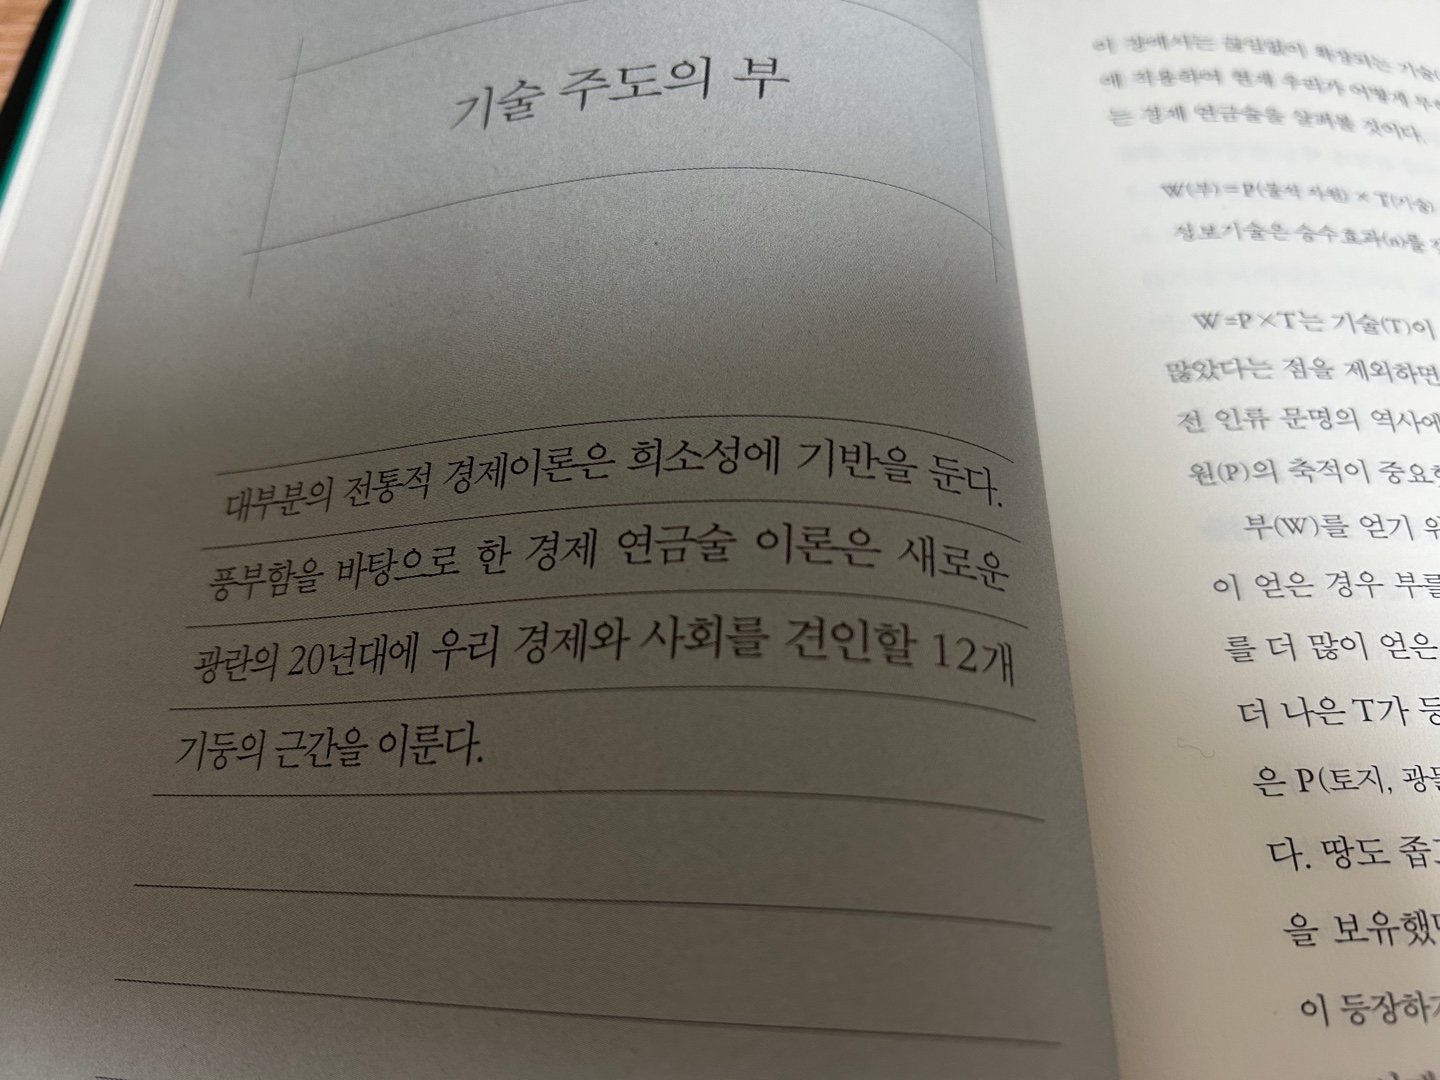 기술 주도의 부
대부분의 전통적 경제이론은 희소성에 기반을 둔다.
풍부함을 바탕으로 한 경제 연금술 이론은 새로운
광란의 20년대에 우리 경제와 사회를 견인할 12개
기둥의 근간을 이룬다.
이 장에서는 끊임없이 확장되는 기술
에 적용하여 현재 우리가 어떻게
는 경제 연금술을 살펴볼 것이다.
W(부)=P(물적 자원) × T(기술)
정보기술은 승수효과(n)를
W=P×T는 기술(T)이
많았다는 점을 제외하면
전 인류 문명의 역사에
원(P)의 축적이
부(W)를 얻기
이 얻은 경우 부를
를 더 많이 얻은
더 나은 T가
은 P(토지,
다. 땅도
을
이